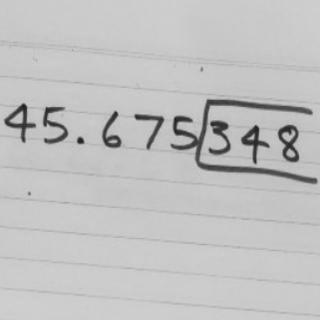 45.675 348